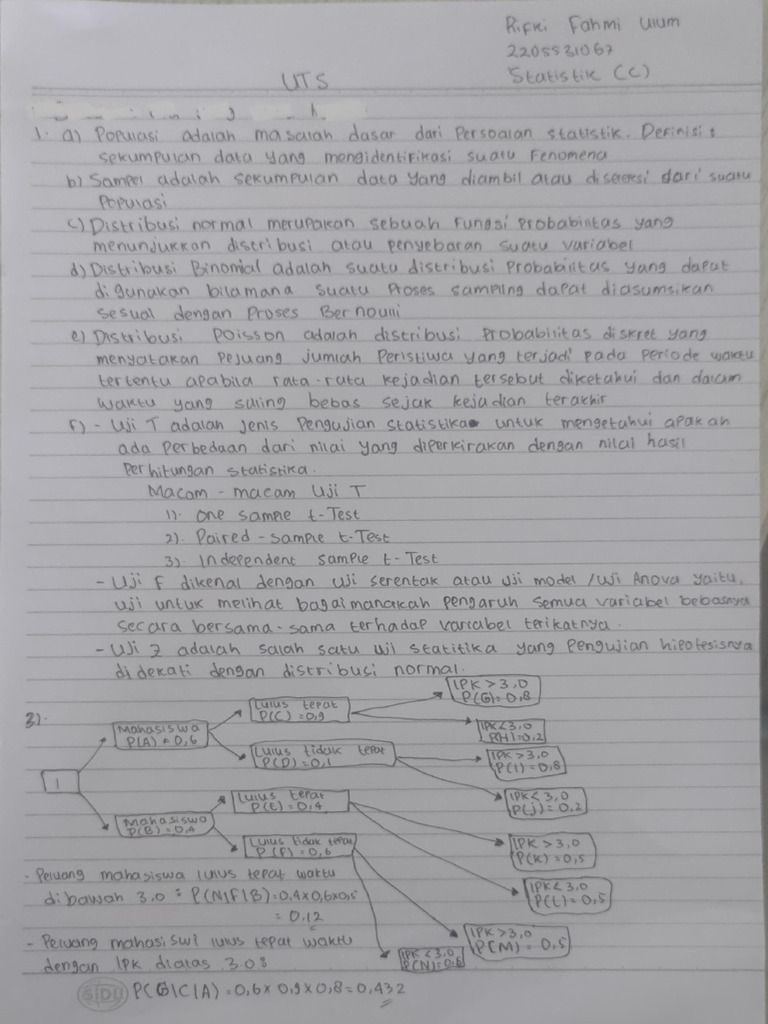 Rifki Fahmi Ulum
2205531067
Statistik (C)
UTS
1. a) Populasi adalah masalah dasar dari Persoalan statistik. Definisi :
sekumpulan data yang mengidentifikasi suatu Fenomena
b) Sampel adalah sekumpulan data yang diambil atau diseleksi dari suatu
Populasi
c) Distribusi normal merupakan sebuah Fungsi Probabilitas yang
menunjukkan distribusi atau penyebaran suatu variabel
d) Distribusi Binomial adalah suatu distribusi Probabilitas yang dapat
digunakan bilamana suatu Proses sampling dapat diasumsikan
sesuai dengan Proses Bernoulli
e) Distribusi Poisson adalah distribusi Probabilitas diskret yang
menyatakan Peluang jumlah Peristiwa yang terjadi pada Periode waktu
tertentu apabila rata-rata kejadian tersebut diketahui dan dalam
waktu yang saling bebas sejak kejadian terakhir
f) - Uji T adalah jenis Pengujian statistika untuk mengetahui apakah
ada perbedaan dari nilai yang diperkirakan dengan nilai hasil
Perhitungan statistika.
Macam - macam Uji T
1). One sample t-Test
2). Paired - sample t-Test
3). Independent sample t-Test
- Uji F dikenal dengan uji serentak atau uji model /uji Anova yaitu,
uji untuk melihat bagaimanakah pengaruh semua variabel bebasnya
secara bersama-sama terhadap variabel terikatnya.
- Uji Z adalah salah satu uji statitika yang Pengujian hipotesisnya
didekati dengan distribusi normal.
3).
1
Mahasiswa
P(A) = 0,6
Mahasiswa
P(B) = 0,4
Lulus tepat
P(C) = 0,9
Lulus tidak tepat
P(D) = 0,1
Lulus tepat
P(E) = 0,4
Lulus tidak tepat
P(F) = 0,6
IPK > 3,0
P(G) = 0,8
IPK < 3,0
P(H) = 0,2
IPK > 3,0
P(I) = 0,8
IPK < 3,0
P(j) = 0,2
IPK > 3,0
P(K) = 0,5
IPK < 3,0
P(L) = 0,5
IPK > 3,0
P(M) = 0,5
IPK < 3,0
- Peluang mahasiswa lulus tepat waktu
dibawah 3.0 : P(N|F|B) = 0,4 x 0,6 x 0,5
= 0,12
- Peluang mahasiswi lulus tepat waktu
dengan IPK diatas 3.0 :
P(G|C|A) = 0,6 x 0,9 x 0,8 = 0,432
SIDU